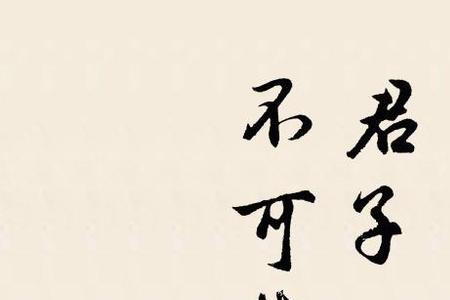 君子
不可